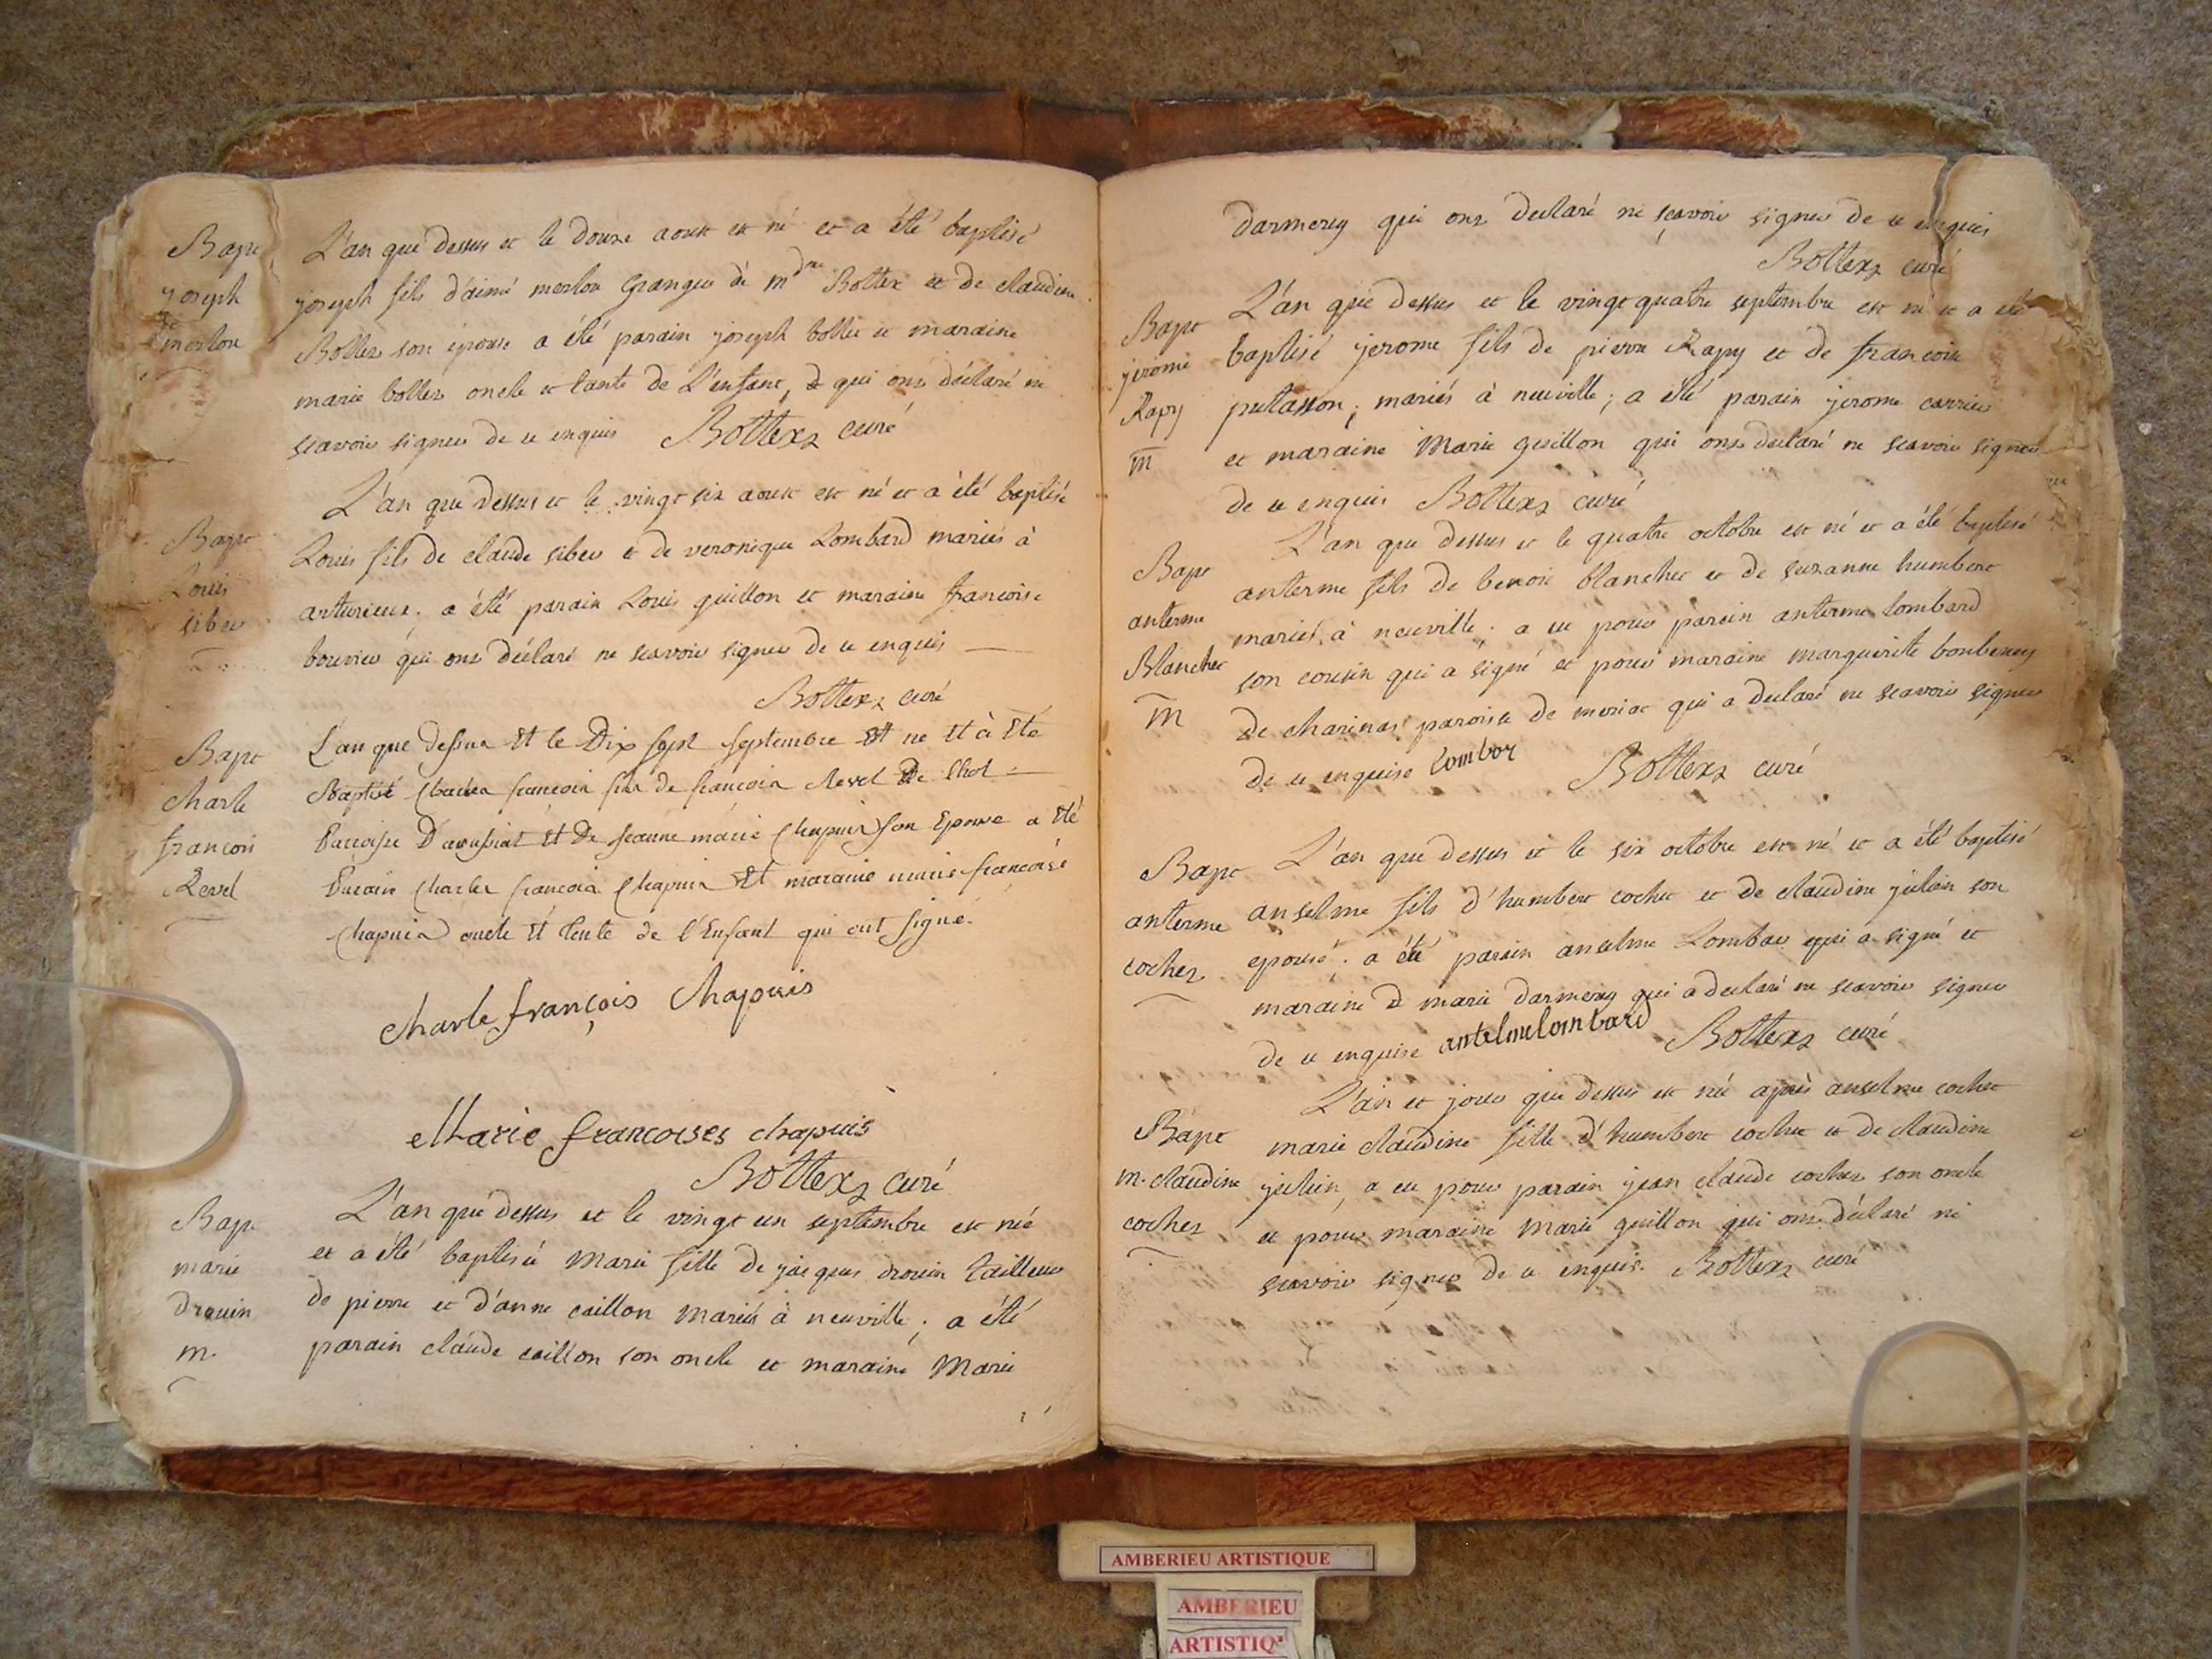 Bapt
joseph
merlou
L'an que dessus et le douze aout est né et a été baptisé
joseph fils d'aimé merlou granger de mdme Bottex et de claudine
Bottex son épouse a été parain joseph bottex et maraine
marie bottex oncle et tante de L'enfant, qui ont déclaré ne
scavoir signer de ce enquis Bottex curé
Bapt
Louis
siber
L'an que dessus et le vingt six aout est né et a été baptisé
Louis fils de claude siber et de veronique Lombard mariés à
arturieux. a été parain Louis guillon et maraine francoise
bouvier qui ont déclaré ne scavoir signer de ce enquis
Bottex curé
Bapt
charle
francois
Revel
L'an que dessus Et le Dix sept septembre Est né Et à Eté
Baptisé Charles francois fils de francois Revel De
Parroisse D' Et De jeanne marie Chapuis son Epouse a Eté
Parain Charles francois Chapuis Et maraine marie francoise
Chapuis oncle Et tente de l'Enfant qui ont signé.
charle françois chapuis
Marie francoises chapuis
Bottex curé
Bapt
marie
drouin
m.
L'an que dessus et le vingt un septembre est née
et a été baptisée Marie fille de jacques drouin tailleur
de pierre et d'anne caillon mariés à neuville; a été
parain claude caillon son oncle et maraine Marie
darmerey qui ont declaré ne scavoir signer de ce enquis
Bottex curé
Bapt
jerome
Rapy
m
L'an que dessus et le vingt quatre septembre est né et a été
baptisé jerome fils de pierre Rapy et de francoise
putasson; mariés à neuville; a été parain jerome carrier
et maraine Marie guillon qui ont declaré ne scavoir signer
de ce enquis Bottex curé
Bapt
anterme
Blanchet
m
L'an que dessus et le quatre octobre est né et a été baptisé
anterme fils de benoit blanchet et de suzanne humbert
mariés à neuville; a eu pour parain anterme lombard
son cousin qui a signé et pour maraine marguerite bonberey
de charinas paroisse de meriat qui a declaré ne scavoir signer
de ce enquise lombar Bottex curé
Bapt
anterme
cochet
L'an que dessus et le six octobre est né et a été baptisé
anselme fils d'humbert cochet et de claudine julien son
epouse. a été parain anselme Lombar qui a signé et
maraine marie darmerey qui a declaré ne scavoir signer
de ce enquise antelme lombard Bottex curé
Bapt
m. claudine
cochet
L'an et jour que dessus est née après anselme cochet
marie claudine fille d'humbert cochet et de claudine
julien, a eu pour parain jean claude cochet son oncle
et pour maraine Marie guillon qui ont déclaré ne
scavoir signer de ce enquis. Bottex curé
AMBERIEU ARTISTIQUE
AMBERIEU
ARTISTIQ